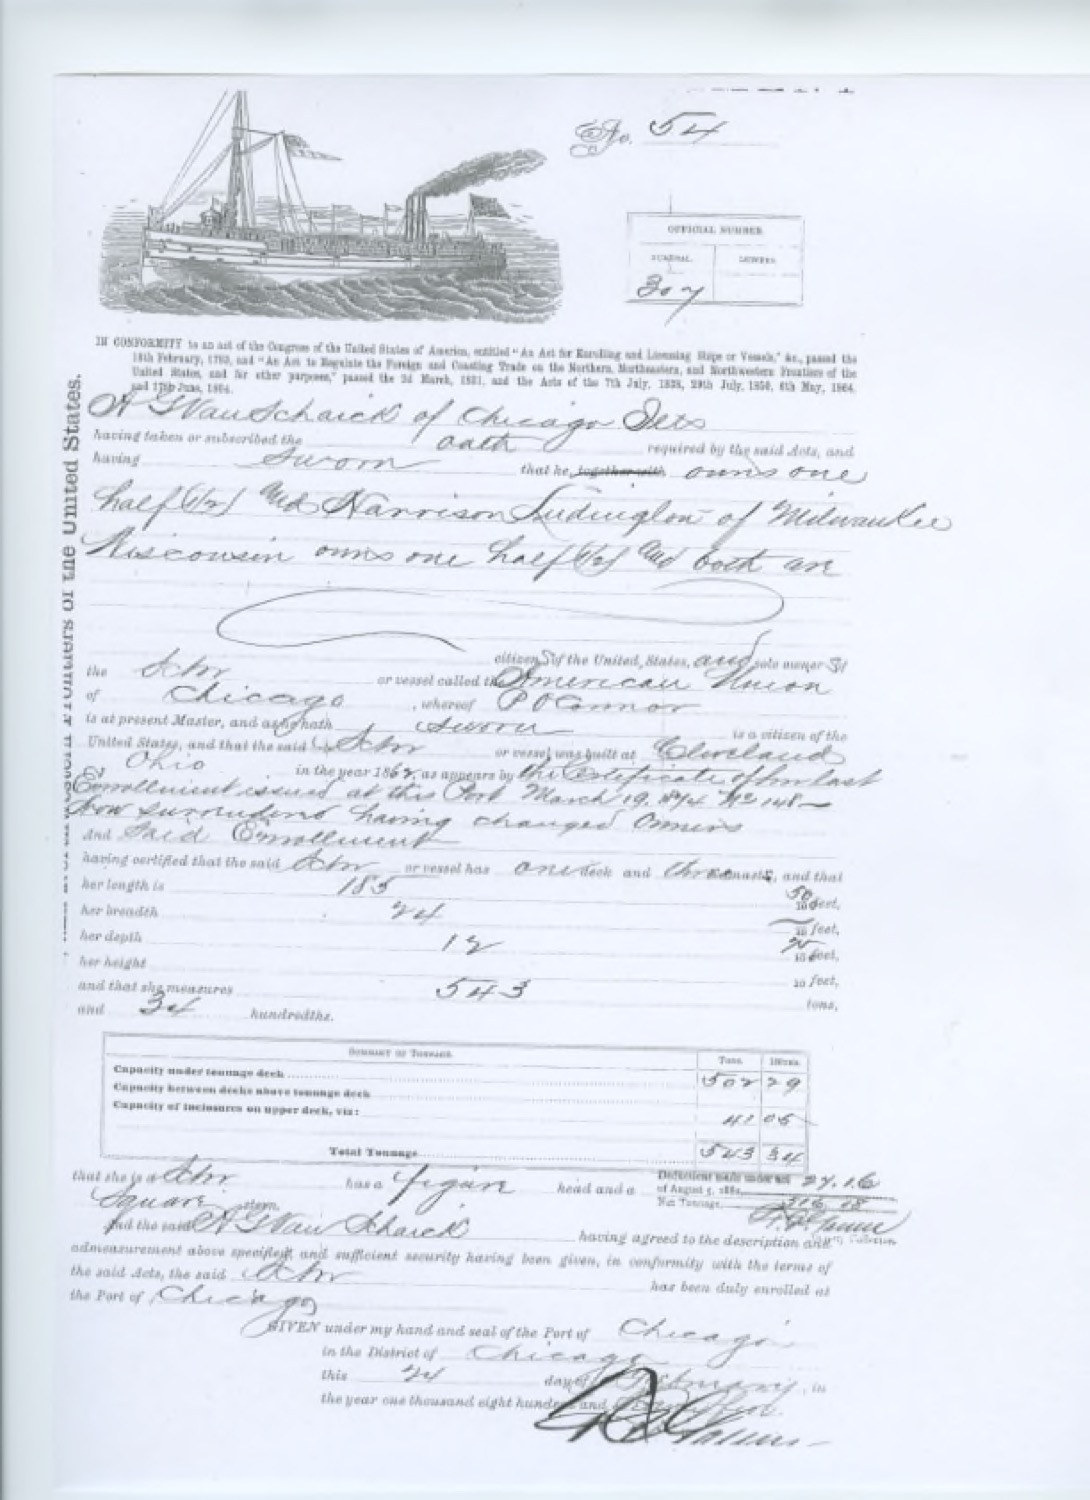 No. 54
OFFICIAL NUMBER
NUMERAL. LETTERS.
307
IN CONFORMITY to an act of the Congress of the United States of America, entitled "An Act for Enrolling and Licensing Ships or Vessels," &c., passed the
18th February, 1793, and "An Act to Regulate the Foreign and Coasting Trade on the Northern, Northeastern, and Northwestern Frontiers of the
United States, and for other purposes," passed the 2d March, 1831, and the Acts of the 7th July, 1838, 29th July, 1850, 6th May, 1864,
and 17th June, 1864.
Frontiers of the United States.
A G Van Schaick of Chicago Ills
having taken or subscribed the oath required by the said Acts, and
having Sworn that he, together with, owns one
half (1/2) And Harrison Ludington of Milwaukee
Wisconsin owns one half (1/2) And both are
citizens of the United States, and sole owners of
the Schr or vessel called the American Union
of Chicago, whereof P O'Connor
is at present Master, and as he hath sworn is a citizen of the
United States, and that the said Schr or vessel was built at Cleveland
Ohio in the year 1862, as appears by the Certificate of her last
Enrollment issued at this Port March 19, No 148
Now surrendered having changed Owners
and Said Enrollment
having certified that the said Schr or vessel has one deck and three masts, and that
her length is 185 50 feet,
her breadth 24 feet,
her depth 12 feet,
her height 10 feet,
and that she measures 543 tons,
and 34 hundredths.
SUMMARY OF TONNAGE TONS.
Capacity under tonnage deck 502 29
Capacity between decks above tonnage deck
Capacity of inclosures on upper deck, viz: 41 05
Total Tonnage 543 34
that she is a Schr has a figure head and a
of August 5, 1882, 27.16
Square stern. Net Tonnage 516 18
And the said A G Van Schaick having agreed to the description and
admeasurement above specified, and sufficient security having been given, in conformity with the terms of
the said Acts, the said Schr has been duly enrolled at
the Port of Chicago
GIVEN under my hand and seal of the Port of Chicago
in the District of Chicago
this 24 day of February, in
the year one thousand eight hundred and